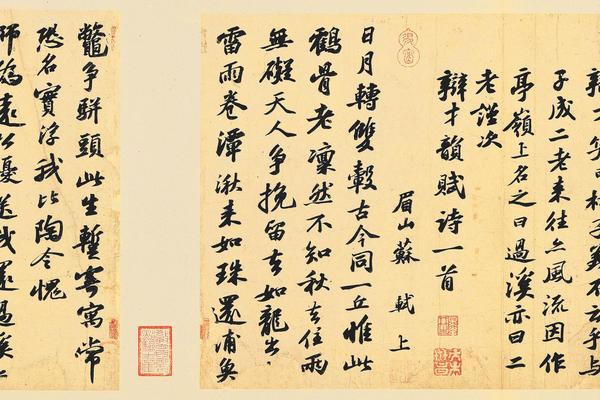 子成二老來往亦風流因作
亭嶺上名之曰過溪亦曰二
老謹次
辯才韻賦詩一首
眉山蘇軾上
日月轉雙轂古今同一丘惟此
鶴骨老凜然不知秋去住兩
無礙天人爭挽留去如龍出
雷雨卷潭湫來如珠還浦魚
鼈爭駢頭此生暫寄寓常
恐名實浮我比陶令愧
師為遠公優送我還過溪